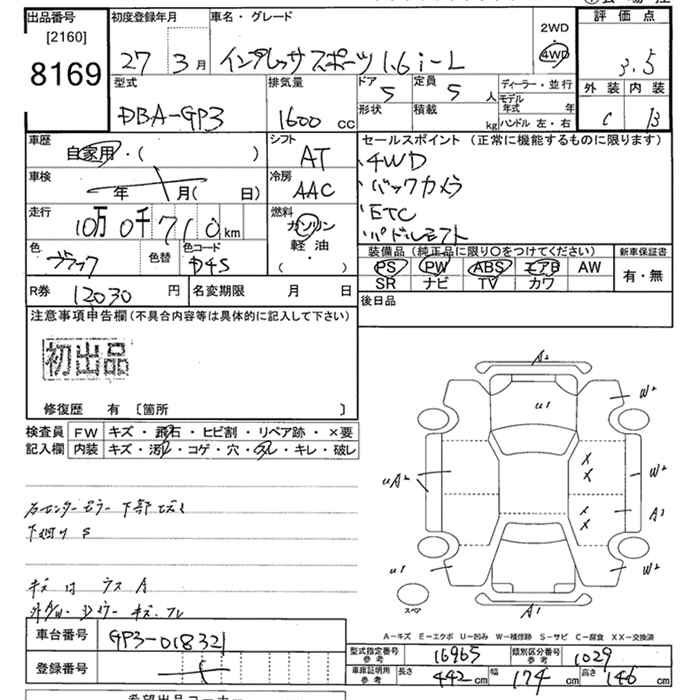 出品番号 初度登録年月 車名・グレード
[2160] 8169
27年 3月 インプレッサスポーツ 1.6 i-L
2WD
4WD
評価点
3.5
外装 内装
C B
型式 排気量 ドア 定員 ディーラー・並行
DBA-GP3 1600 cc 5 5 人
形状 積載 kg
モデル年式 年
ハンドル 左・右
車歴
自家用・( )
シフト
AT
セールスポイント (正常に機能するものに限ります)
4WD
バックカメラ
ETC
パドルシフト
車検
年 月( 日)
冷房
AAC
走行
10万0千710 km
燃料
ガソリン
軽油
( ・ )
色 ブラック 色替 色コード D4S
装備品 (純正品に限り○をつけてください) 新車保証書
PS PW ABS エアB AW 有・無
SR ナビ TV カワ
R券 12030 円 名変期限 月 日
後日品
注意事項申告欄 (不具合内容等は具体的に記入して下さい)
初出品
修復歴 有 〔箇所 〕
検査員 FW キズ・飛石・ヒビ割・リペア跡・×要
記入欄 内装 キズ・汚れ・コゲ・穴・スレ・キレ・破レ
下廻り S
キズ 凹 ウス A
A2
W2
u1
W2
uA2
X
X
W2
X
X
A1
u1
W2
スペア
A1
A-キズ E-エクボ U-凹み W-補修跡 S-サビ C-腐食 XX-交換済
車台番号 GP3-018321
登録番号
型式指定番号 参考 16965 類別区分番号 参考 1029
車庫証明用 参考 長さ 442 cm 幅 174 cm 高さ 146 cm
希望出品コーナー